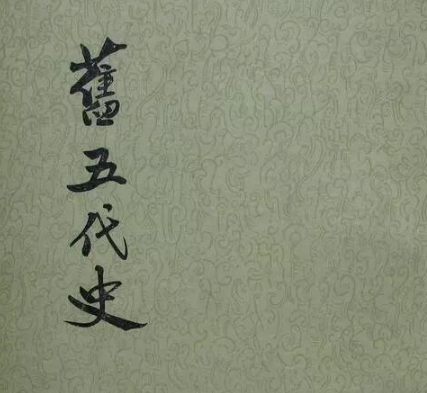 舊五代史